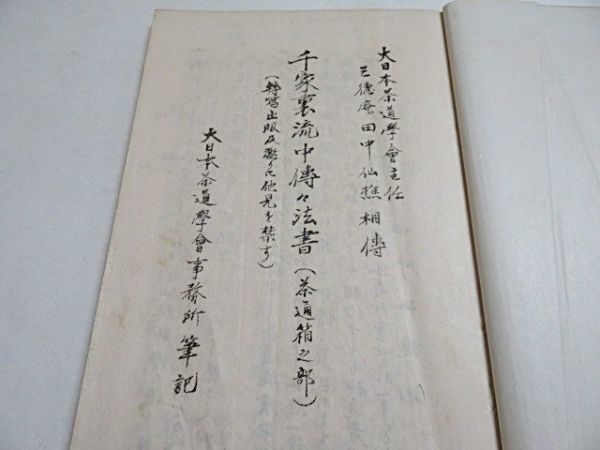 大日本茶道學會主任
三徳庵田中仙樵相傳
千家裏流中傳々法書(茶通箱之部)
(轉寫出版及濫りに他見を禁す)
大日本茶道學會事務所筆記